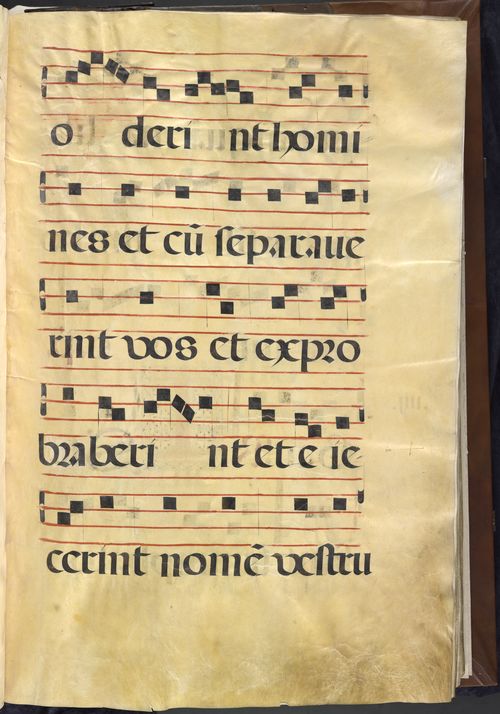 o deri nt homi
nes et cũ separaue
rint vos et expro
braberi nt et e ie
cerint nomẽ vestru